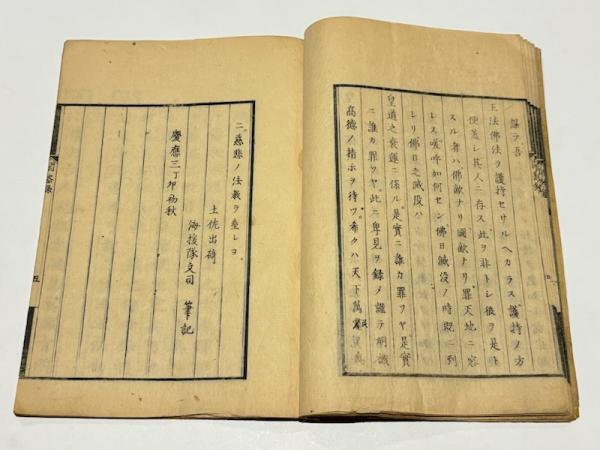 謀ラ吾
王法佛法ヲ護持セサルヘカラス護持ノ方
便蓋シ其人ニ存ス此ヲ非トシ彼ヲ是非
スル者ハ佛敵ナリ國敵ナリ罪天地ニ容
レス嗟呼如何セン佛日滅没ノ時既ニ到
レリ佛日之滅没ハ
皇道之衰運ニ係ル是實ニ誰カ罪ソヤ是實
ニ誰カ罪ソヤ此ニ卑見ヲ録メ謹テ明識
高德ノ指示ヲ待ツ希クハ天下萬民
ニ慈悲ノ法教ヲ垂レヨ
土佐出碕
海援隊文司 筆記
慶應三丁卯初秋
五